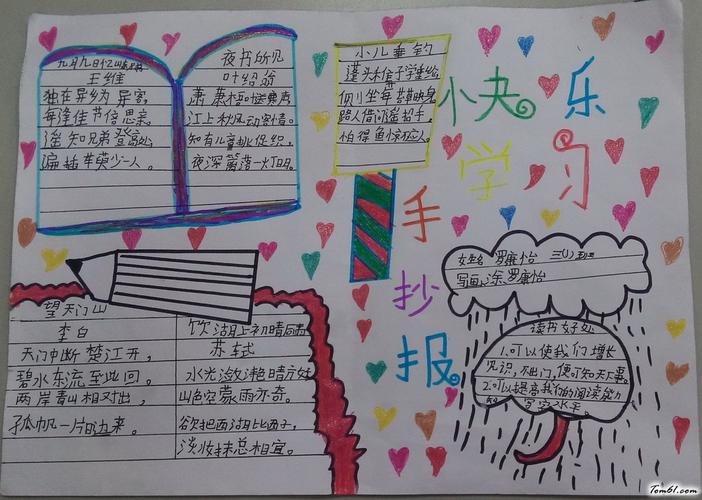 九月九日忆山东兄弟
王维
独在异乡为异客，
每逢佳节倍思亲。
遥知兄弟登高处
遍插茱萸少一人。
夜书所见
叶绍翁
萧萧梧叶送寒声
江上秋风动客情。
知有儿童挑促织，
夜深篱落一灯明。
小儿垂钓
蓬头稚子学垂纶
侧坐莓苔草映身
路人借问遥招手，
怕得鱼惊不应人。
快乐
学习
手
抄
报
望天门山
李白
天门中断楚江开，
碧水东流至此回。
两岸青山相对出，
孤帆一片日边来。
饮湖上初晴后雨
苏轼
水光潋滟晴方好
山色空蒙雨亦奇。
欲把西湖比西子，
淡妆抹总相宜。
姓名 罗雍怡 三(1)班
罗雍怡
读书好处
1.可以使我们增长
见识，不出门，便可知天下事。
2.可以提高我们的阅读能力
和写字水平
Tom61.com